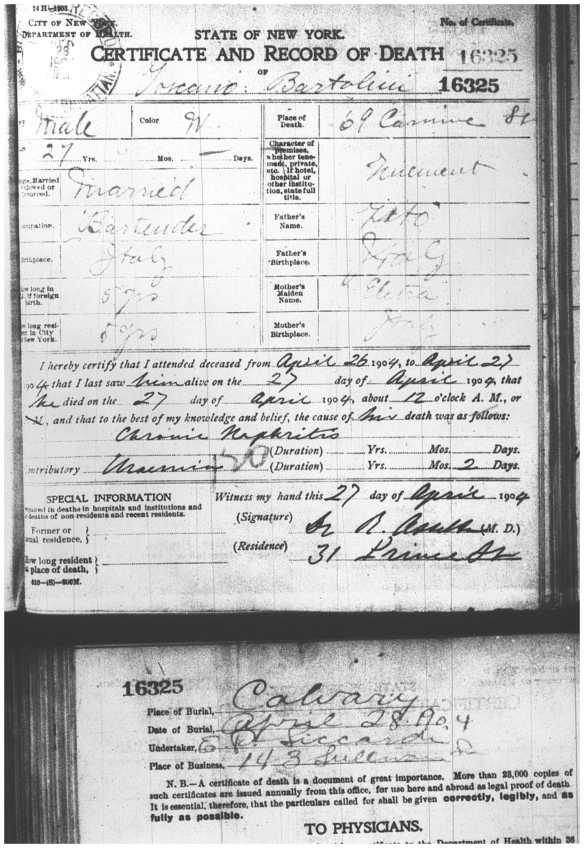 14 H-1903.
CITY OF NEW YORK.
DEPARTMENT OF HEALTH.
No. of Certificate.
STATE OF NEW YORK.
CERTIFICATE AND RECORD OF DEATH
16325
OF
Toscano Bartolini
16325
Male
Color W.
Place of Death.
69 Carmine St
27 Yrs. Mos. — Days.
Character of premises, whether tenement, private, etc. If hotel, hospital or other institution, state full title.
Tenement
Married
Married
Bartender
Father's Name.
Italy
Father's Birthplace.
Italy
5 yrs
Mother's Maiden Name.
5 yrs
Mother's Birthplace.
Italy
I hereby certify that I attended deceased from April 26 1904, to April 27
1904 that I last saw him alive on the 27 day of April 1904, that
he died on the 27 day of April 1904, about 12 o'clock A. M., or
and that to the best of my knowledge and belief, the cause of his death was as follows:
Chronic Nephritis
(Duration) Yrs. Mos. Days.
ntributory Uraemia 120 (Duration) Yrs. Mos. 2 Days.
SPECIAL INFORMATION
Witness my hand this 27 day of April 1904
deaths in hospitals and institutions and
deaths of non-residents and recent residents.
(Signature) Dr R. (M. D.)
Former or
residence,
(Residence) 31 Prince St
long resident
place of death,
16325
Place of Burial, Calvary
Date of Burial, April 28. 190 4
Undertaker, Siccardi
Place of Business, 143 Sullivan St
N. B.—A certificate of death is a document of great importance. More than 28,000 copies of
such certificates are issued annually from this office, for use here and abroad as legal proof of death
It is essential, therefore, that the particulars called for shall be given correctly, legibly, and as
fully as possible.
TO PHYSICIANS.
Department of Health within 36